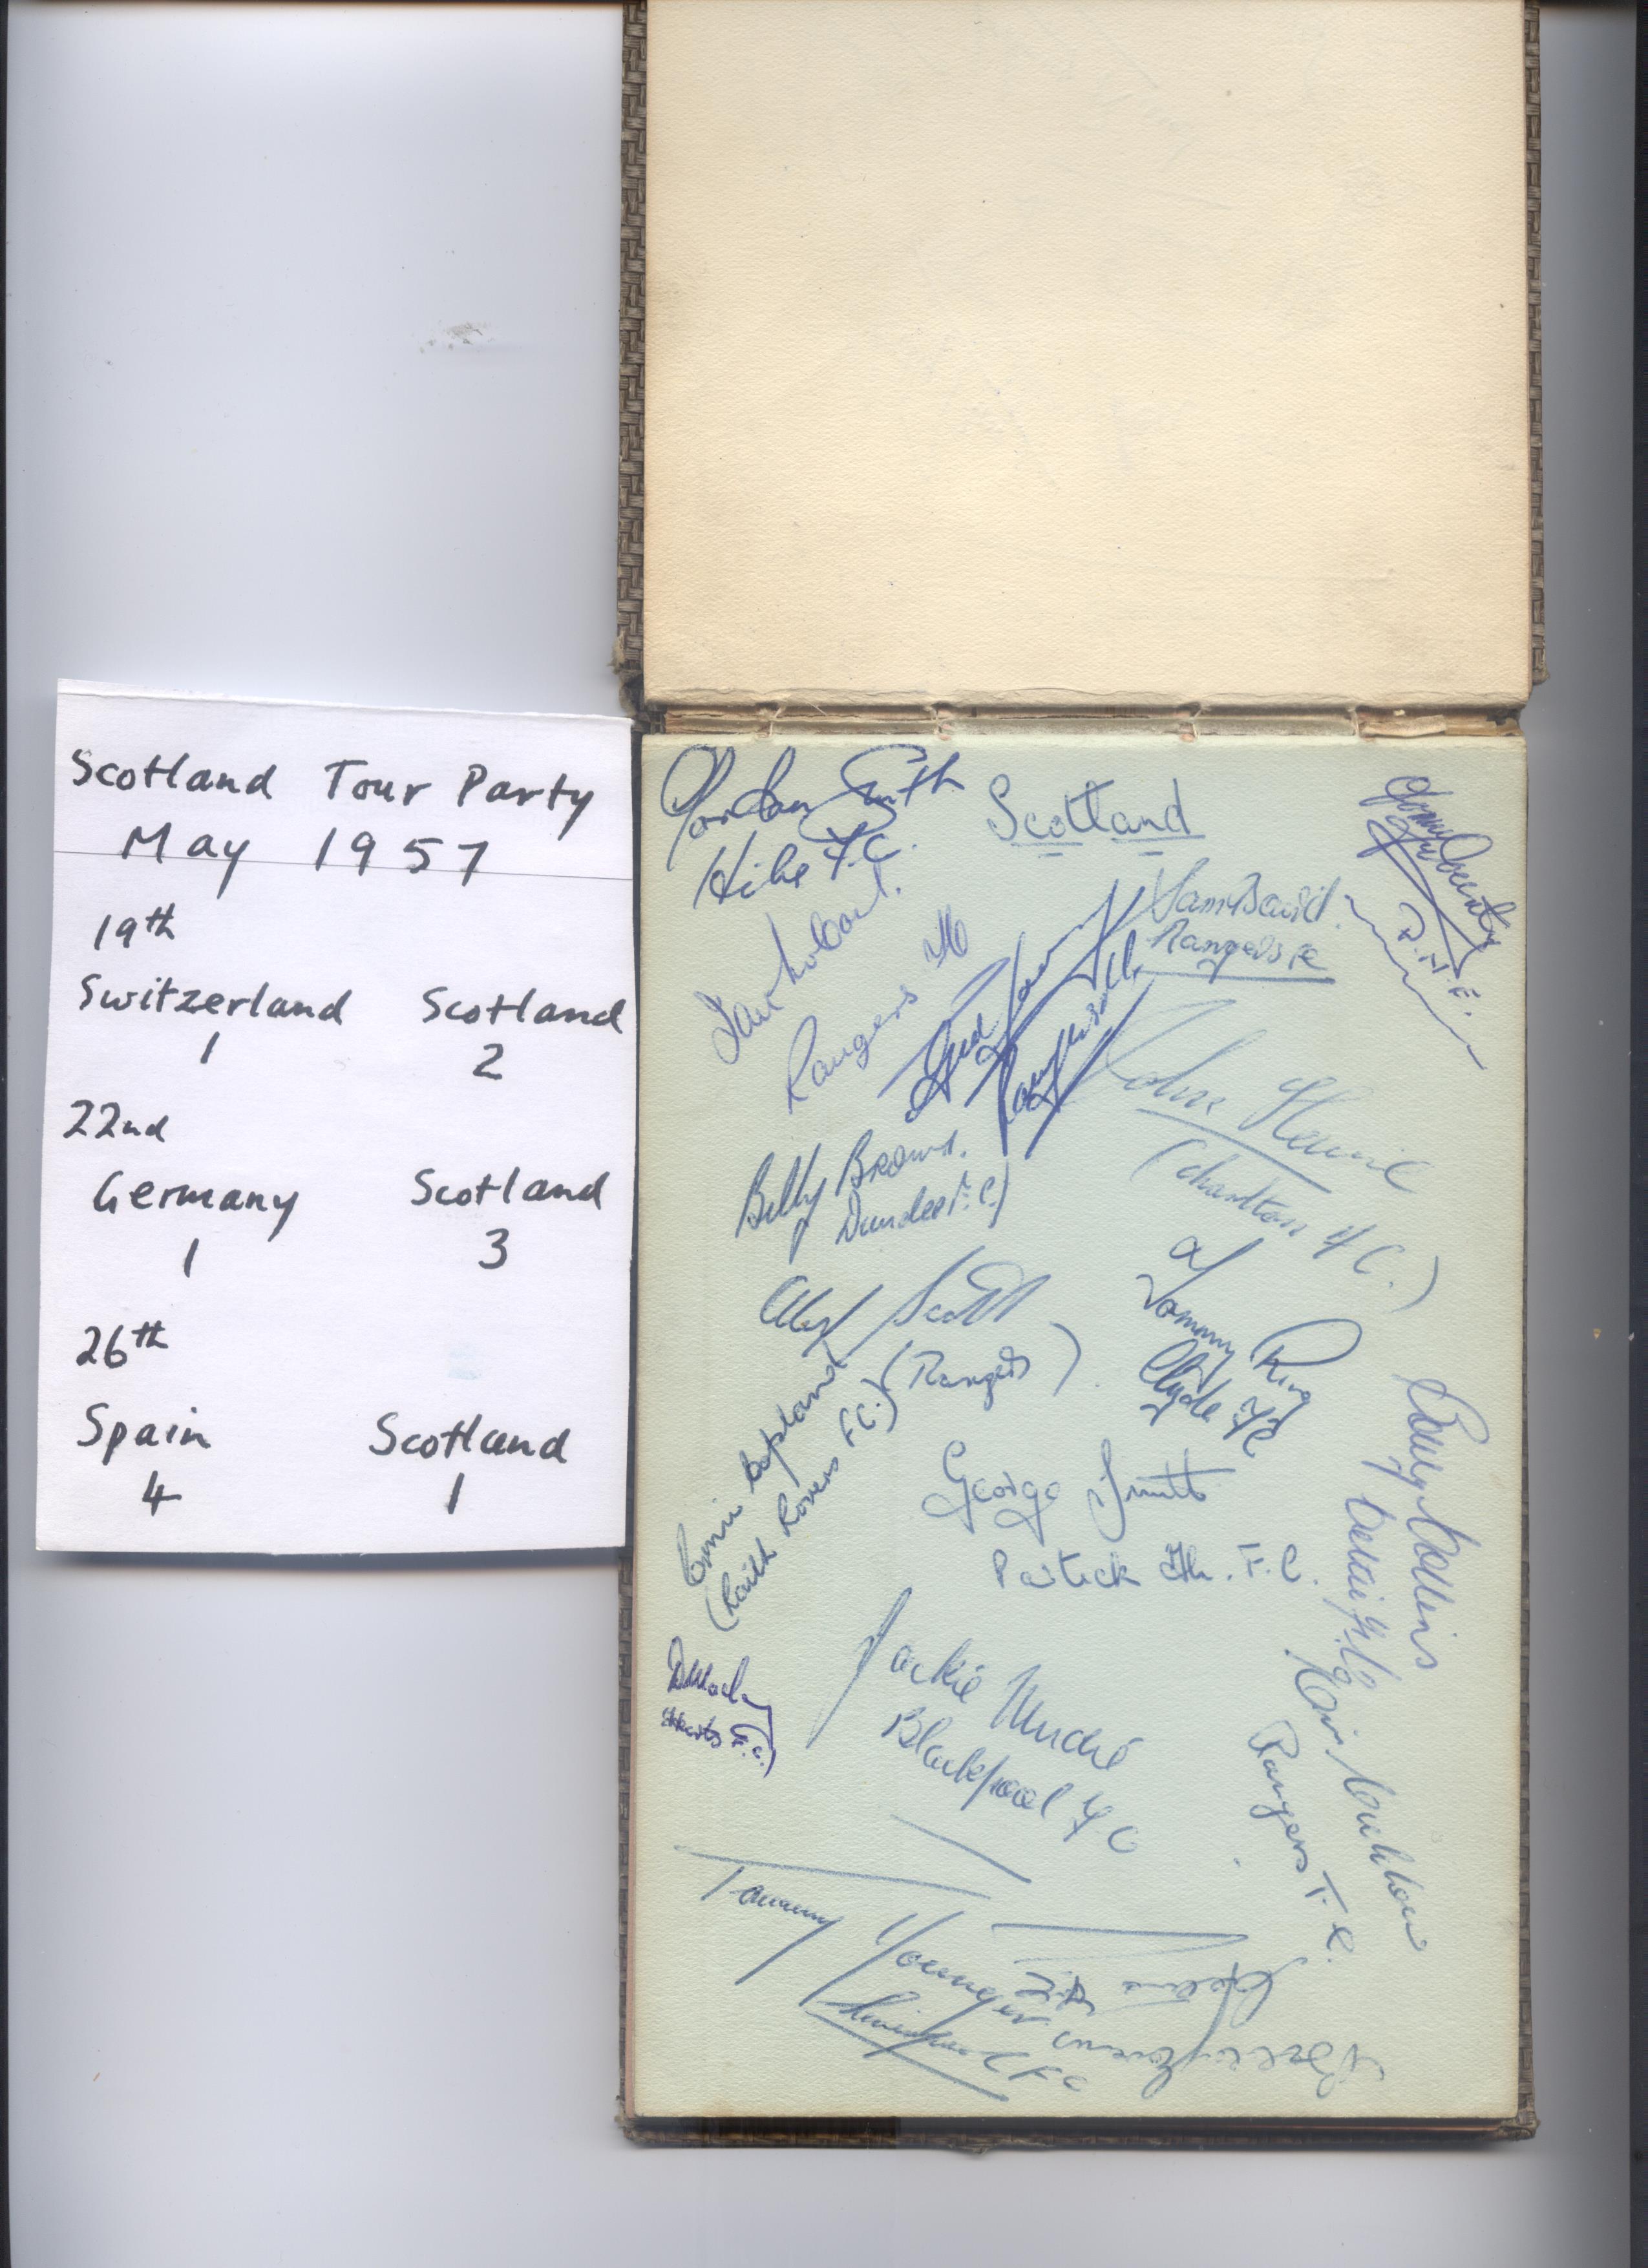 Scotland Tour Party
May 1957
19th
Switzerland Scotland
1 2
22nd
Germany Scotland
1 3
26th
Spain Scotland
4 1
Scotland
Gordon Smith
Hibs F.C.
Ian McColl.
Rangers FC
Sam Baird.
Rangers FC
Tommy Docherty
P.N.E.
John Hewie
(Charlton F C.)
Billy Brown.
Dundee F.C.)
Alex Scott
(Rangers)
Tommy Ring
Clyde FC
Ernie Copland
(Raith Rovers F.C.)
George Smith
Partick Th. F.C.
Bobby Collins
Celtic F.C.
D Mackay
Hearts F.C.)
Jackie Mudie
Blackpool F C
Eric Caldow
Rangers F.C.
Tommy Younger
Liverpool F C
Bobby Evans
Celtic F.C.